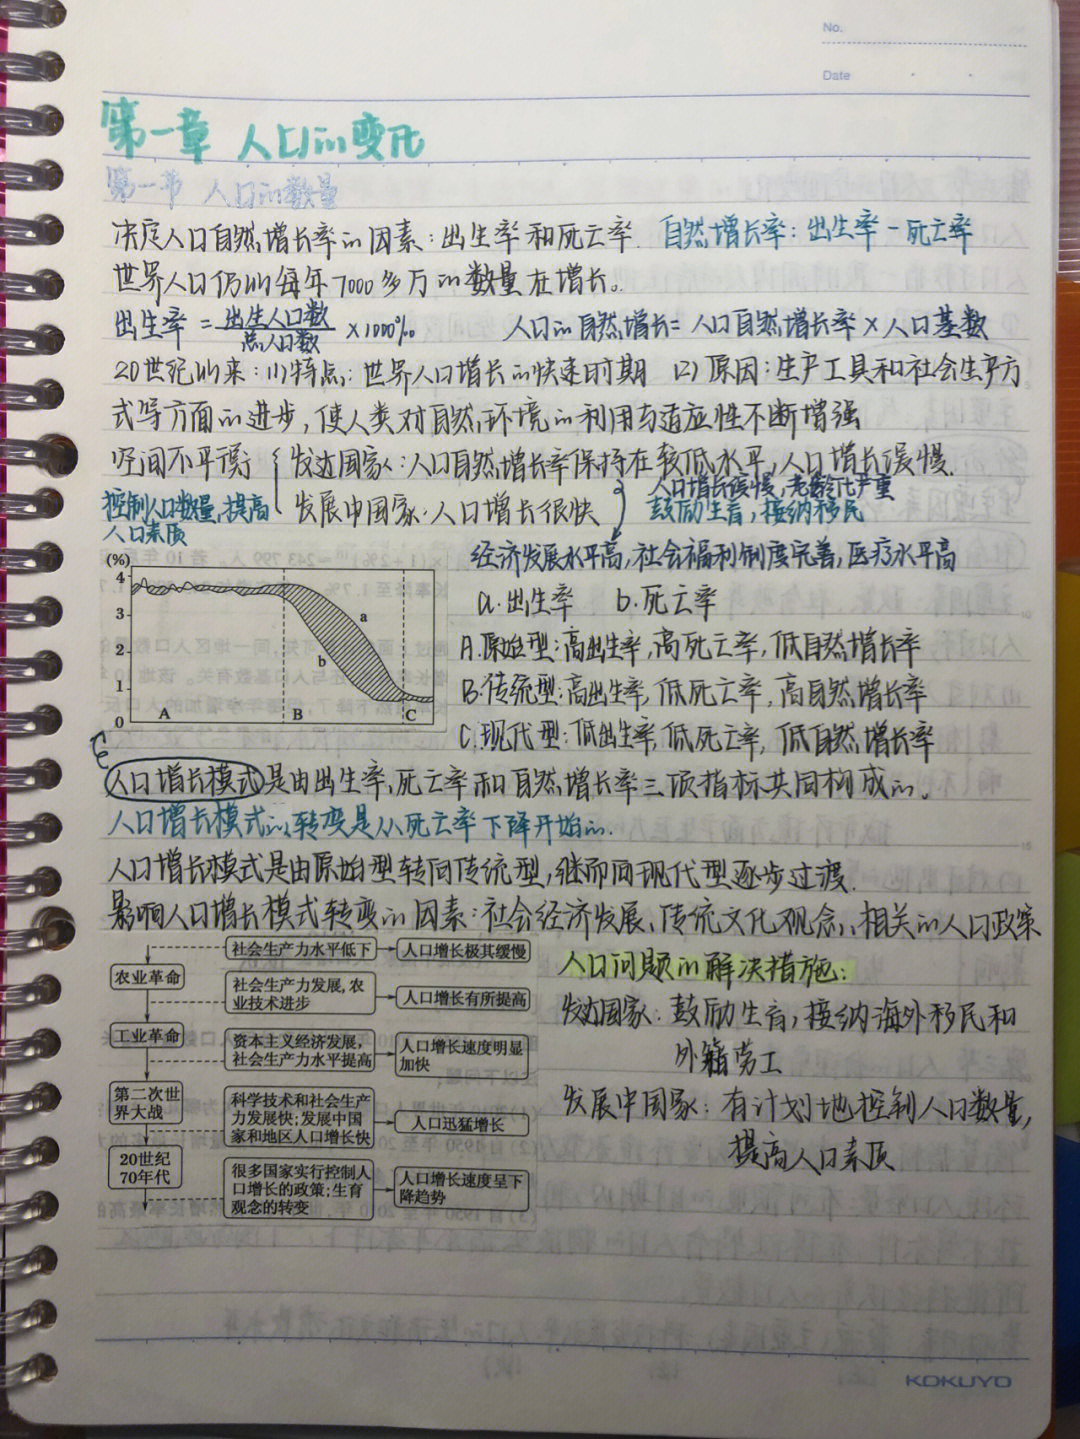 No.
Date
第一章 人口的变化
第一节 人口的数量
决定人口自然增长率的因素：出生率和死亡率. 自然增长率：出生率－死亡率
世界人口仍以每年7000多万的数量在增长。
出生率 = 出生人口数/总人口数 ×1000‰ 人口的自然增长= 人口自然增长率×人口基数
20世纪以来：(1)特点：世界人口增长的快速时期 (2)原因：生产工具和社会生产方
式等方面的进步，使人类对自然环境的利用与适应性不断增强
空间不平衡 { 发达国家：人口自然增长率保持在较低水平，人口增长缓慢.
人口增长缓慢，老龄化严重
控制人口数量，提高 发展中国家：人口增长很快 鼓励生育，接纳移民
人口素质
经济发展水平高，社会福利制度完善，医疗水平高
(%)
4
3
2
1
0
a
b
A B C
a.出生率 b.死亡率
A.原始型：高出生率，高死亡率，低自然增长率
B.传统型：高出生率，低死亡率，高自然增长率
C.现代型：低出生率，低死亡率，低自然增长率
人口增长模式是由出生率，死亡率和自然增长率三项指标共同构成的。
人口增长模式的转变是从死亡率下降开始的.
人口增长模式是由原始型转向传统型，继而向现代型逐步过渡.
影响人口增长模式转变的因素：社会经济发展、传统文化观念、相关的人口政策
社会生产力水平低下 人口增长极其缓慢
农业革命
社会生产力发展,农
业技术进步
人口增长有所提高
工业革命
资本主义经济发展,
社会生产力水平提高
人口增长速度明显
加快
第二次世
界大战
科学技术和社会生产
力发展快;发展中国
家和地区人口增长快
人口迅猛增长
20世纪
70年代
很多国家实行控制人
口增长的政策;生育
观念的转变
人口增长速度呈下
降趋势
人口问题的解决措施：
发达国家：鼓励生育，接纳海外移民和
外籍劳工
发展中国家：有计划地控制人口数量，
提高人口素质
KOKUYO